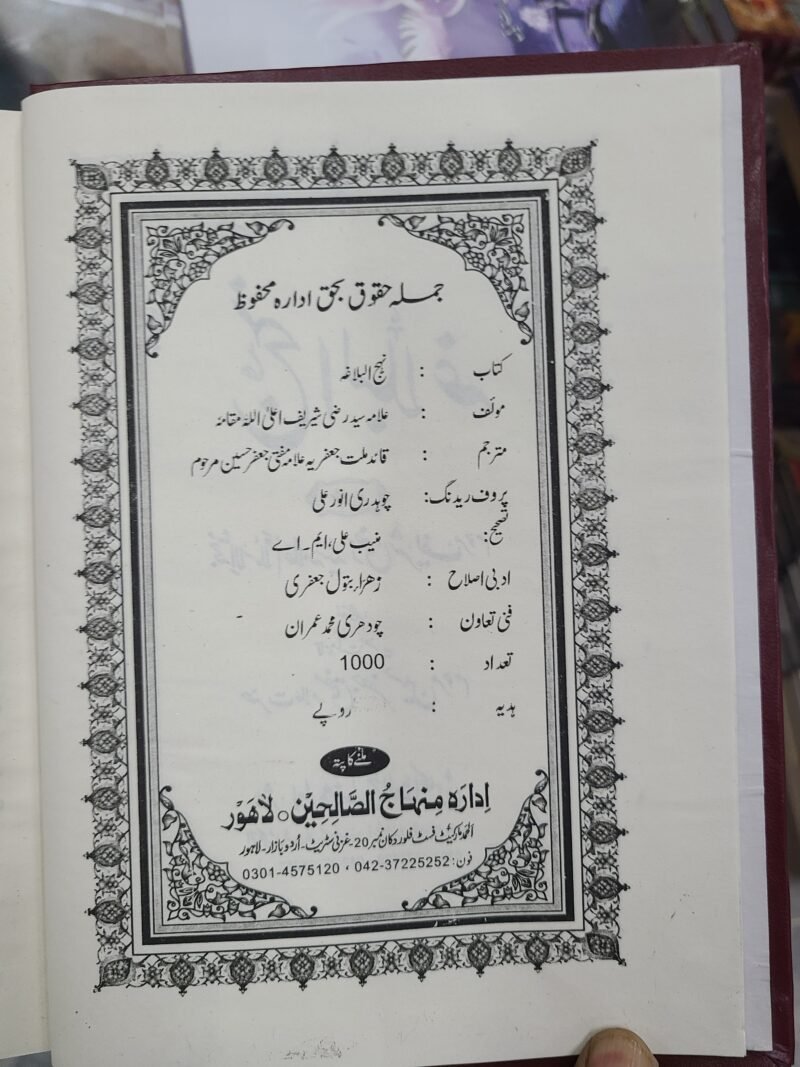 جملہ حقوق بحق ادارہ محفوظ
کتاب : نہج البلاغہ
مولف : علامہ سید رضی شریف اعلیٰ اللہ مقامہٗ
مترجم : قائد ملت جعفریہ علامہ مفتی جعفر حسین مرحوم
پروف ریڈنگ: چوہدری انور علی
تصحیح: منیب علی، ایم۔ اے
ادبی اصلاح : زھرا بتول جعفری
فنی تعاون : چودھری محمد عمران
تعداد : 1000
ہدیہ : روپے
ملنے کا پتہ
اِدارہ مِنہَاجُ الصَّالِحِیْن ○ لاَھَوْر
الحمد مارکیٹ فسٹ فلور دکان نمبر 20۔ غزنی سٹریٹ۔ اُردو بازار۔ لاہور
فون: 042-37225252 ، 0301-4575120